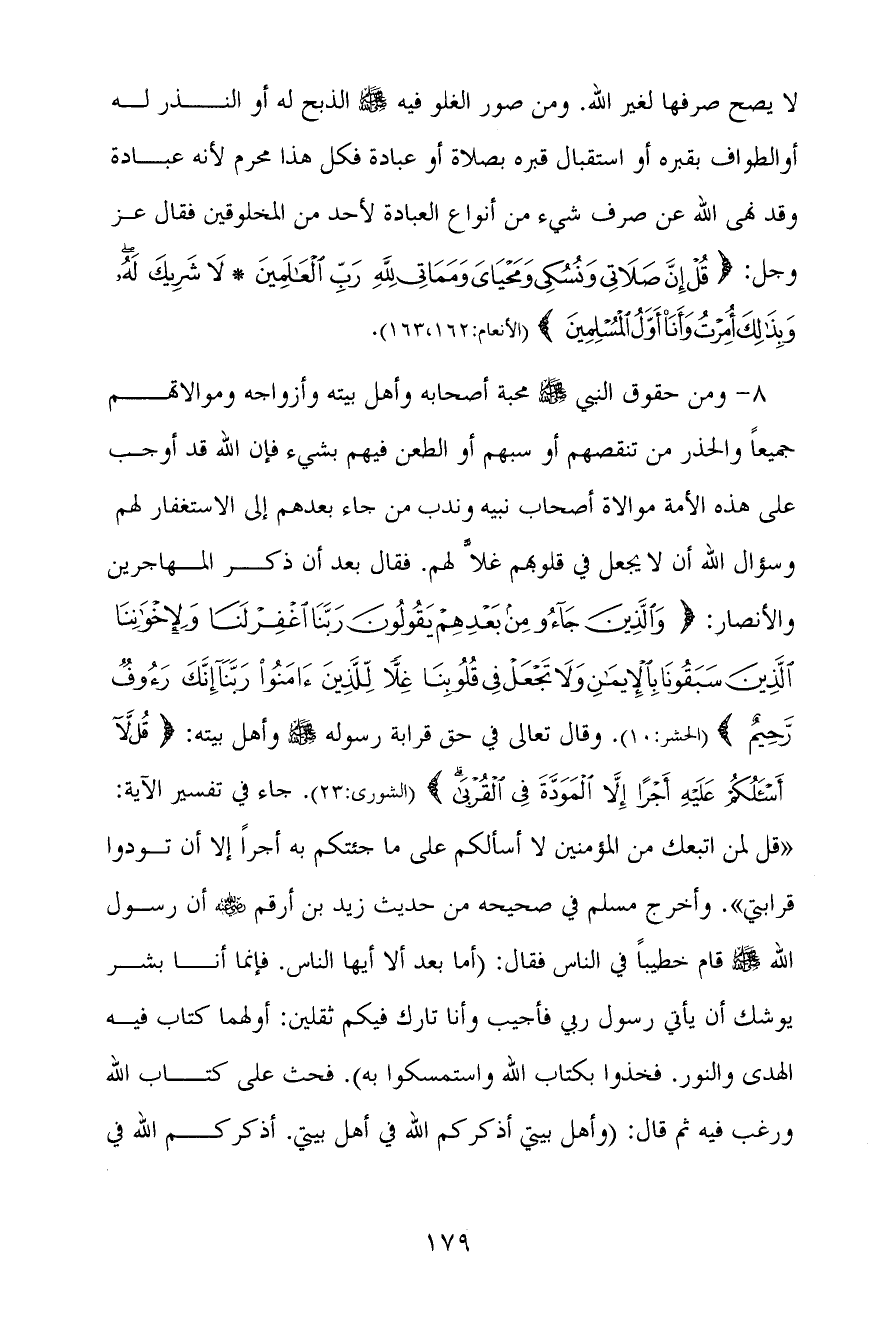 لا يصح صرفها لغير الله. ومن صور الغلو فيه ﷺ الذبح له أو النـذر لـه
أوالطواف بقبره أو استقبال قبره بصلاة أو عبادة فكل هذا محرم لأنه عبـادة
وقد نهى الله عن صرف شيء من أنواع العبادة لأحد من المخلوقين فقال عـز
وجل: ﴿ قُلْ إِنَّ صَلَاتِى وَنُسُكِى وَمَحْيَاىَ وَمَمَاتِى لِلَّهِ رَبِّ ٱلْعَـٰلَمِينَ * لَا شَرِيكَ لَهُۥۖ
وَبِذَٰلِكَ أُمِرْتُ وَأَنَا۠ أَوَّلُ ٱلْمُسْلِمِينَ ﴾ (الأنعام:١٦٢،١٦٣).
٨- ومن حقوق النبي ﷺ محبة أصحابه وأهل بيته وأزواجه وموالاتهـم
جميعاً والحذر من تنقصهم أو سبهم أو الطعن فيهم بشيء فإن الله قد أوجـب
على هذه الأمة موالاة أصحاب نبيه وندب من جاء بعدهم إلى الاستغفار لهم
وسؤال الله أن لا يجعل في قلوبهم غلاًّ لهم. فقال بعد أن ذكـر المـهاجرين
والأنصار: ﴿ وَٱلَّذِينَ جَآءُو مِنۢ بَعْدِهِمْ يَقُولُونَ رَبَّنَا ٱغْفِرْ لَنَا وَلِإِخْوَٰنِنَا
ٱلَّذِينَ سَبَقُونَا بِٱلْإِيمَـٰنِ وَلَا تَجْعَلْ فِى قُلُوبِنَا غِلًّا لِّلَّذِينَ ءَامَنُوا۟ رَبَّنَآ إِنَّكَ رَءُوفٌ
رَّحِيمٌ ﴾ (الحشر:١٠). وقال تعالى في حق قرابة رسوله ﷺ وأهل بيته: ﴿ قُل لَّآ
أَسْـَٔلُكُمْ عَلَيْهِ أَجْرًا إِلَّا ٱلْمَوَدَّةَ فِى ٱلْقُرْبَىٰۗ ﴾ (الشورى:٢٣). جاء في تفسير الآية:
«قل لمن اتبعك من المؤمنين لا أسألكم على ما جئتكم به أجراً إلا أن تـودوا
قرابتي». وأخرج مسلم في صحيحه من حديث زيد بن أرقم رضي الله عنه أن رسـول
الله ﷺ قام خطيباً في الناس فقال: (أما بعد ألا أيها الناس. فإنما أنـا بشـر
يوشك أن يأتي رسول ربي فأجيب وأنا تارك فيكم ثقلين: أولهما كتاب فيـه
الهدى والنور. فخذوا بكتاب الله واستمسكوا به). فحث على كتـاب الله
ورغب فيه ثم قال: (وأهل بيتي أذكركم الله في أهل بيتي. أذكركـم الله في
١٧٩